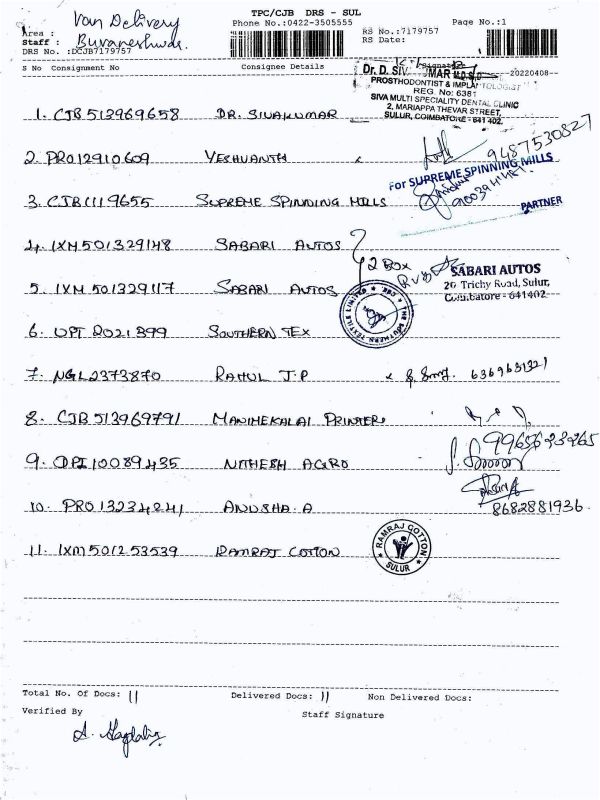 TPC/CJB DRS - SUL
Van Delivery
Phone No.:0422-3505555
RS No.:7179757
Page No.:1
Area :
RS Date:
Staff : Buvaneshwar.
DRS No. :DCJB7179757
S No Consignment No Consignee Details Signature 20220408
Dr. D. SIV MAR M.D.S.,
PROSTHODONTIST & IMPLANTOLOGIST
REG. No: 6381
SIVA MULTI SPECIALITY DENTAL CLINIC
2, MARIAPPA THEVAR STREET,
SULUR, COIMBATORE - 641 402.
1. CJB 513969658 DR. SIVAKUMAR
2. PRO12910609 YESHUANTH
9487530827
For SUPREME SPINNING MILLS
PARTNER
3. CJB1119655 SUPREME SPINNING MILLS
4. IXM501329148 SABARI AUTOS
2 BOX
SABARI AUTOS
20 Trichy Road, Sulur,
Coimbatore - 641402
5. IXM 501329117 SABARI AUTOS
THE SOUTHERN TEXTILE LIMITED
6. UPT 2021399 SOUTHERN TEX
7. NGL2373870 RAHUL J.P 6369631321
8. CJB 513969791 MANIMEKALAI PRINTERS
9965623265
9. OPI10089435 NITHESH AGRO
10. PRO 13234241 ANUSHA. A
8682881936.
11. IXM5012 53539 RAMRAJ COTTON
RAMRAJ COTTON
SULUR
Total No. Of Docs: 11 Delivered Docs: 11 Non Delivered Docs:
Verified By Staff Signature